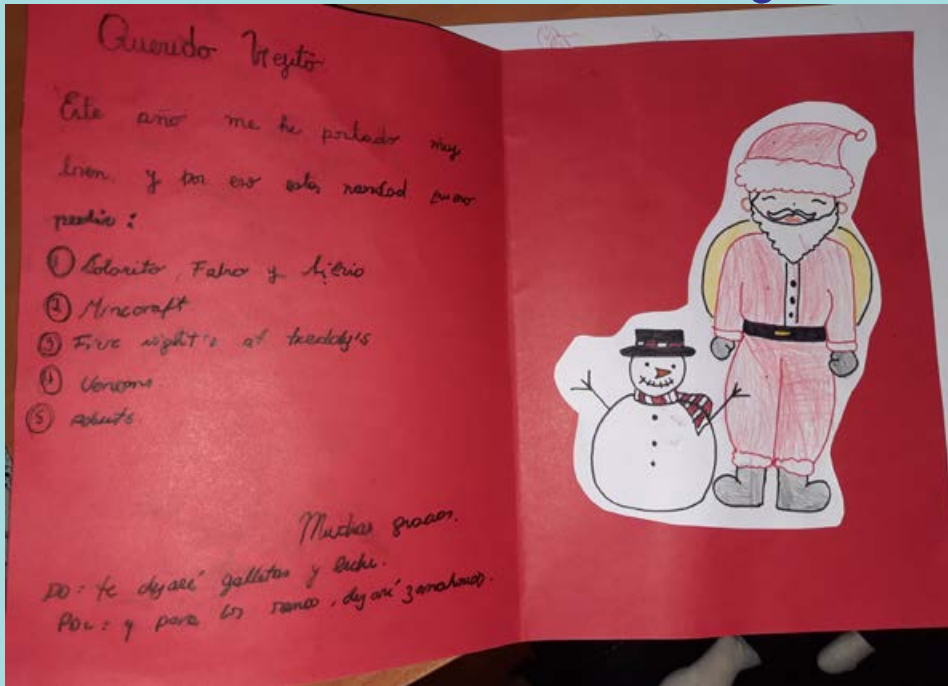 Querido Viejito
Este año me he portado muy
bien. y por eso esta navidad quiero
pedir:
① Fabro y
② Mincoraft
③ Five night's at freddy's
④ Venom
⑤ robuts.
Muchas gracias.
PD: te dejaré galletas y leche.
PD2: y para los renos, dejaré zanahorias.